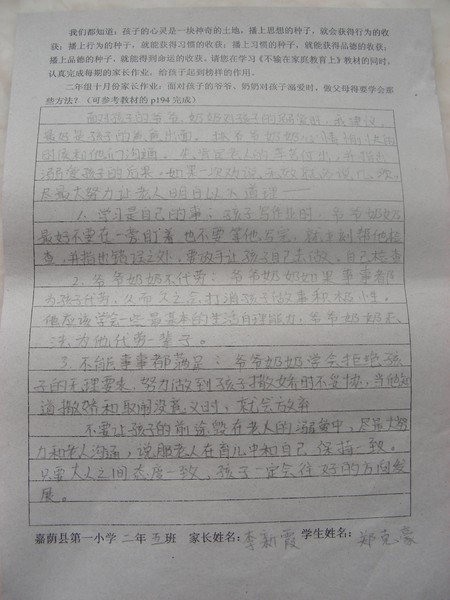 我们都知道：孩子的心灵是一块神奇的土地，播上思想的种子，就会获得行为的收
获；播上行为的种子，就能获得习惯的收获；播上习惯的种子，就能获得品德的收获；
播上品德的种子，就能得到命运的收获。请您在学习《不输在家庭教育上》教材的同时，
认真完成每期的家长作业，给孩子起到榜样的作用。
二年级十月份家长作业：面对孩子的爷爷、奶奶对孩子溺爱时，做父母得要学会那
些方法？（可参考教材的 p194 完成）
面对孩子的爷爷、奶奶对孩子的溺爱时，我建议
最好是孩子的爸爸出面。
的时候和他们沟通。先肯定老人的辛苦付出，再指出
溺爱孩子的后果，如果一次劝说无效就必说几次，
尽最大努力让老人明白以下道理——
1. 学习是自己的事：孩子写作业时，爷爷奶奶
最好不要在一旁盯着，也不要等他写完，就立刻帮他检
查，并指出错误之处，要放手让孩子自己去做，自己检查
2. 爷爷奶奶不代劳：爷爷奶奶如果事事都
为孩子代劳，久而久之会打消孩子做事积极性。
他应该学会一些最基本的生活自理能力，爷爷奶奶无
法为他代劳一辈子。
3. 不能事事都满足：爷爷奶奶学会拒绝孩
子的无理要求，努力做到孩子撒娇时不妥协，当他知
道撒娇和取闹没意义时，就会放弃
不要让孩子的前途毁在老人的溺爱中，尽最大努
力和老人沟通，说服老人在育儿中和自己保持一致。
只要大人之间态度一致，孩子一定会往好的方向发
展。
嘉荫县第一小学 二年五班 家长姓名：李新霞 学生姓名：郑克濛